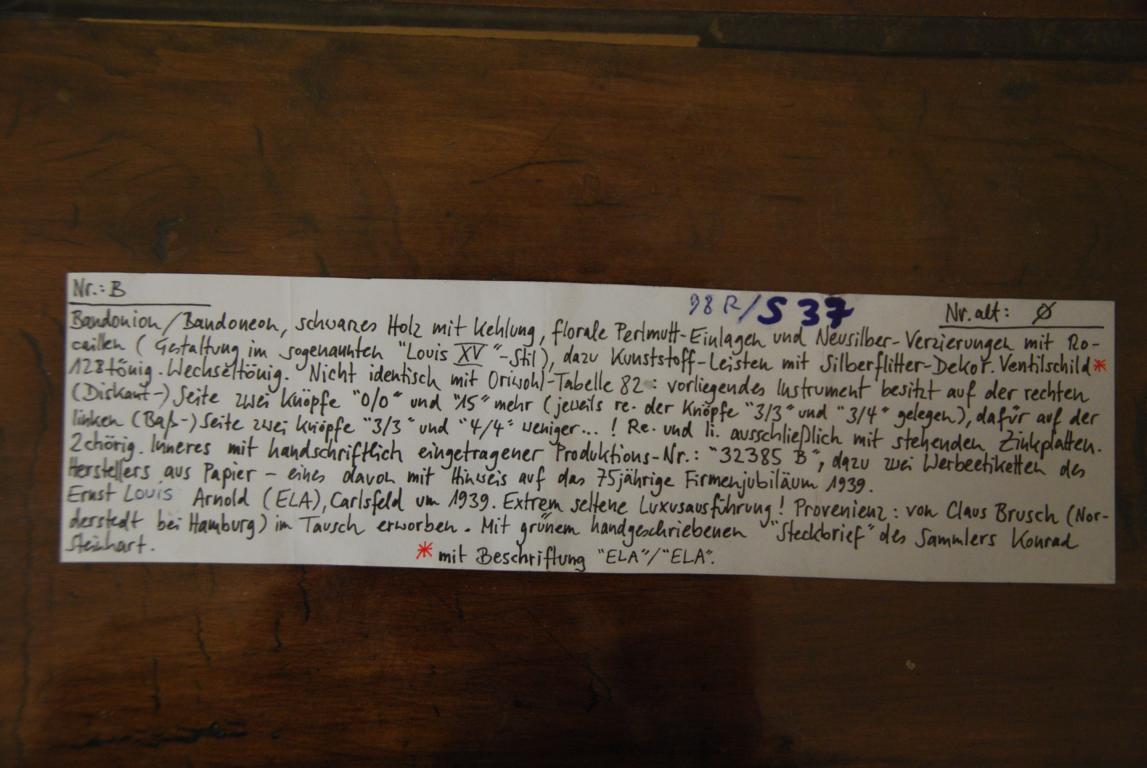 Nr.: B
98 R/S 37
Nr. alt: Ø
Bandonion/Bandoneon, schwarzes Holz mit Kehlung, florale Perlmutt-Einlagen und Neusilber-Verzierungen mit Ro-
caillen (Gestaltung im sogenannten "Louis XV"-Stil), dazu Kunststoff-Leisten mit Silberflitter-Dekor. Ventilschild*
128tönig. Wechseltönig. Nicht identisch mit Oriwohl-Tabelle 82: vorliegendes Instrument besitzt auf der rechten
(Diskant-) Seite zwei Knöpfe "0/0" und "15" mehr (jeweils re. der Knöpfe "3/3" und "3/4" gelegen), dafür auf der
linken (Baß-) Seite zwei Knöpfe "3/3" und "4/4" weniger...! Re. und li. ausschließlich mit stehenden Zinkplatten.
2chörig. Inneres mit handschriftlich eingetragener Produktions-Nr.: "32385 B", dazu zwei Werbeetiketten des
Herstellers aus Papier – eines davon mit Hinweis auf das 75jährige Firmenjubiläum 1939.
Ernst Louis Arnold (ELA), Carlsfeld um 1939. Extrem seltene Luxusausführung! Provenienz: von Claus Brusch (Nor-
derstedt bei Hamburg) im Tausch erworben. Mit grünem handgeschriebenen "Steckbrief" des Sammlers Konrad
Steinhart.
* mit Beschriftung "ELA"/"ELA".